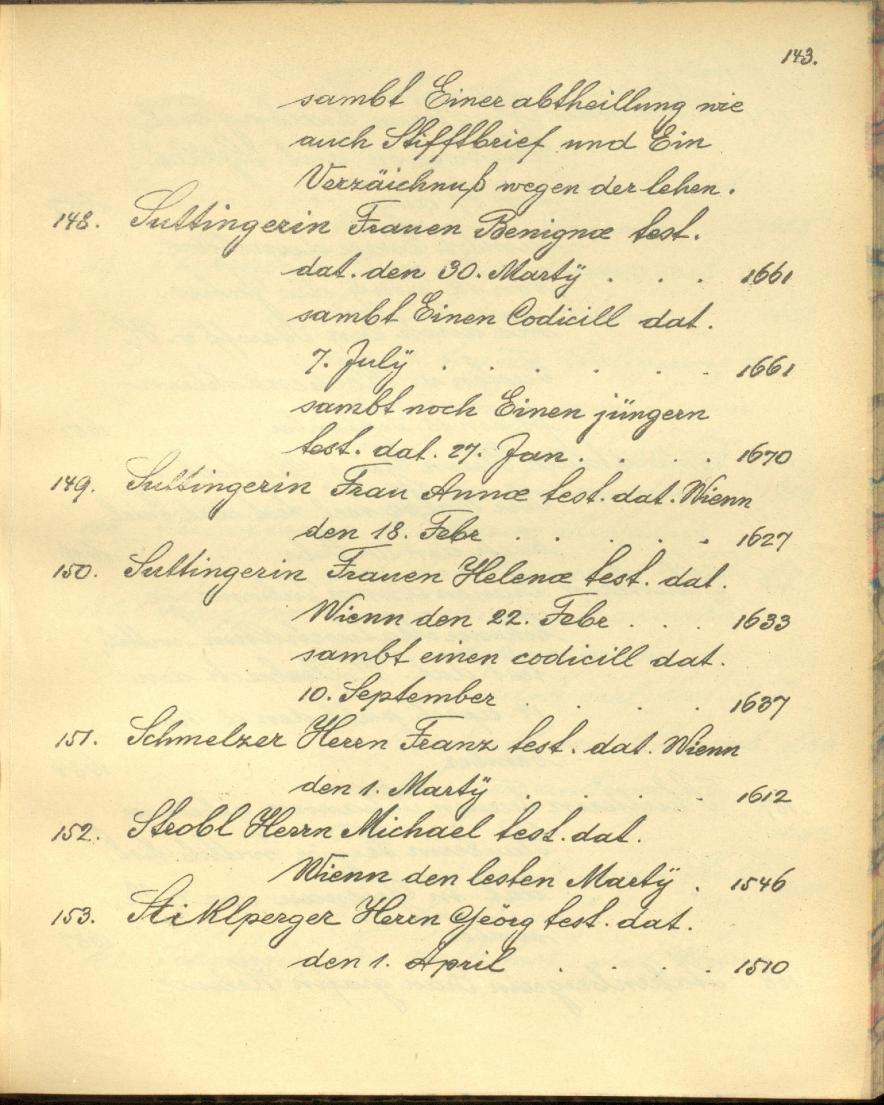 143.
sambt Einer abtheillung wie
auch Stifftbrief und Ein
Verzäichnuß wegen der lehen.
148. Suttingerin Frauen Benignæ test.
dat. den 30. Martÿ . . . 1661
sambt Einen Codicill dat.
7. Julÿ . . . . . . 1661
sambt noch Einen jüngern
test. dat. 27. Jan. . . . . 1670
149. Suttingerin Frau Annæ test. dat. Wienn
den 18. Febr . . . . . 1627
150. Suttingerin Frauen Helenæ test. dat.
Wienn den 22. Febr . . . 1633
sambt einen codicill dat.
10. September . . . . 1637
151. Schmelzer Herrn Franz test. dat. Wienn
den 1. Martÿ . . . . 1612
152. Strobl Herrn Michael test. dat.
Wienn den lesten Martÿ . 1546
153. Stiklperger Herrn Geörg test. dat.
den 1. April . . . . 1510